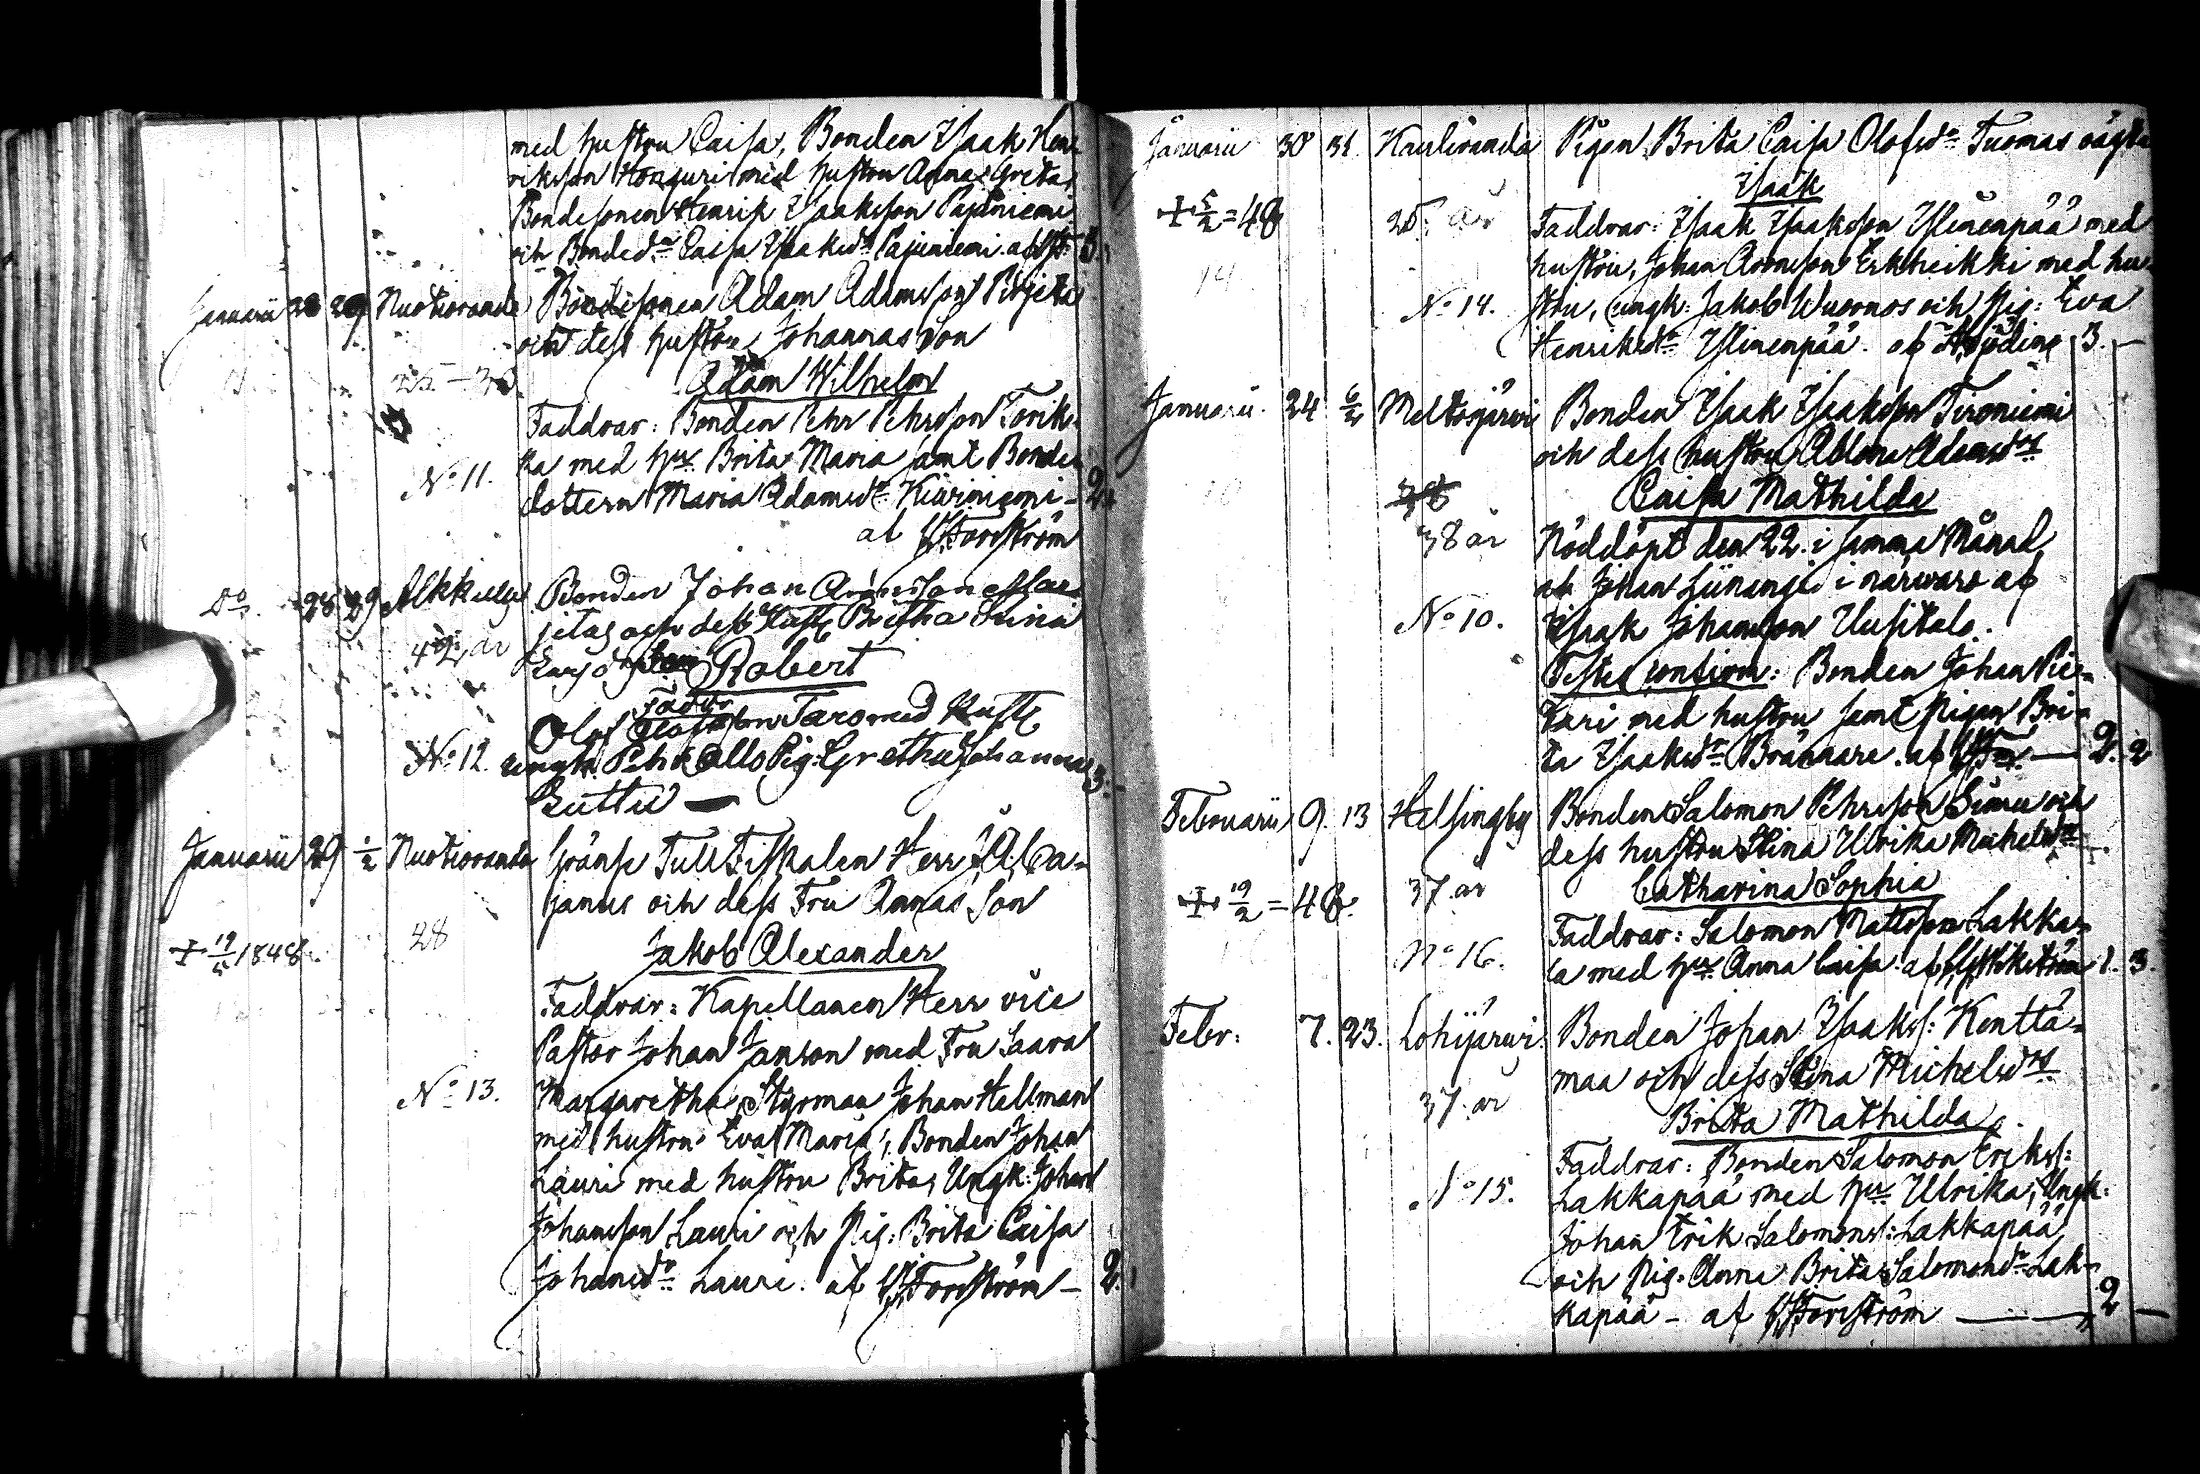 med hustru Caisa, Bonden Isaak Hen-
riksson Honguri med hustru Anna Greta,
Bondesonen Henrik Isaaksson Pajuniemi
och Bonded:r Caisa Isaaksd:r Pajuniemi. af 3.
Januarii 28 29 Nuotioranda Bondesonen Adam Adamsson
och dess hustru Johannas son
Adam Wilhelm
Faddrar: Bonden Pehr Pehrsson Torik-
ka med h:u Brita Maria samt Bonde
No 11. dottern Maria Adamsd:r 2.
af Forsström
D:o 28 29 Alkkula Bonden Johan
och dess Hust: Britha Stina
42 år
Robert
Faddr
Olof med Hust:
No 12. ungk: Pehr Pig: Gretha Johanna 3.
Januarii 29 1/2 Nuotioranda Gräns Tull Fiskalen Herr J. A. Ca-
janus och dess Fru Annas Son
28
+ 19/5 1848. Jakob Alexander
Faddrar: Kapellanen Herr vice
Pastor Johan Janson med Fru Saara
No 13. Margaretha, Styrman Johan Hellman
med hustru Eva Maria, Bonden Johan
Lauri med hustru Brita, Ungk: Johan
Johansson Lauri och Pig: Brita Caisa
Johansd:r Lauri. af Forsström - 2.
Januarii 30 31 Kauliranda Pigan Brita Caisa Olofsd:r Tuomas oägta
Isaak
+ 5/2 = 48 25 år Faddrar: Isaak Isaaksson Ylinenpää med
14 hustru, Johan Aronsson Erkheikki med hu-
No 14. stru, ungk: Jakob Wuornos och Pig: Eva
Henriksd:r Ylinenpää. af 3. -
Januarii. 24 6/2 Meltosjärwi Bonden Isaak Isaaksson Tironiemi
och dess hustru Adamsd:rs
10 Caisa Mathilda
38 år Nöddöpt den 22. i samma Månad
af Johan i närwaro af
No 10. Isaak Johansson Uusitalo.
Testes confirm: Bonden Johan Pie-
kari med hustru samt Pigan Bri-
ta Isaaksd:r Brännare. af 2. 2
Februarii 9. 13 Helsingby Bonden Salomon Pehrsson Simu och
dess hustru Stina Ulrika Michelsd:rs
+ 19/2 = 48. 37 år Catharina Sophia
Faddrar: Salomon Mattsson Lakka-
No 16. la med h:u Anna Caisa. af 1. 3.
Febr: 7. 23. Lohijärwi. Bonden Johan Isaakss: Kenttä-
maa och dess Stina Michelsd:rs
37 år Brita Mathilda.
Faddrar: Bonden Salomon Erikss:
No 15. Lakkapää med h:u Ulrika, Ungk:
Johan Erik Salomonss: Lakkapää
och Pig: Anna Brita Salomonsd:r Lak-
kapää - af Forsström 2 -